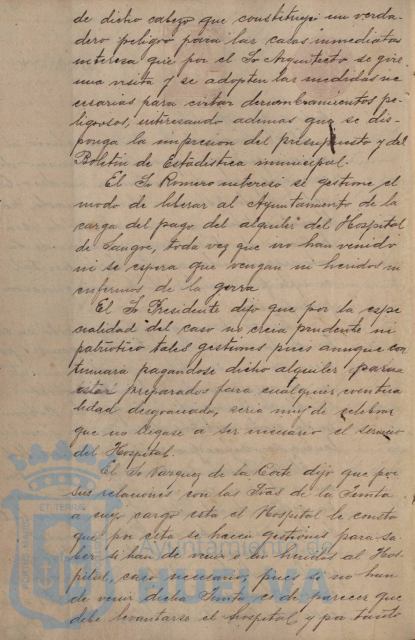 de dicho cabezo que constituye un verda-
dero peligro para las casas inmediatas
interesa que por el Sr Arquitecto se gire
una visita y se adopten las medidas ne-
cesarias para evitar derrumbamientos pe-
ligrosos, interesando ademas que se dis-
ponga la impresion del presupuesto y del
Boletin de Estadistica municipal.
El Sr Romero interesó se gestione el
modo de liberar al Ayuntamiento de la
carga del pago del alquiler del Hospital
de Sangre, toda vez que no han venido
ni se espera que vengan ni heridos ni
enfermos de la gerra
El Sr Presidente dijo que por la espe-
cialidad del caso no creia prudente ni
patriotico tales gestiones pues aunque con-
tinuara pagandose dicho alquiler para
estar preparados para cualquier eventua-
lidad desgraciada, seria muy de celebrar
que no llegase á ser necesario el servicio
del Hospital.
El Sr Vazquez de la Corte dijo que por
sus relaciones con las Sras de la Junta
a cuyo cargo esta el Hospital le consta
que por esta se hacen gestiones para sa-
ber si han de venir ó no heridos al Hos-
pital, caso necesario, pues si no han
de venir dicha Junta es de parecer que
debe levantarse el hospital y por tanto
ET TERRÆ
Ayuntamiento de
HUELVA